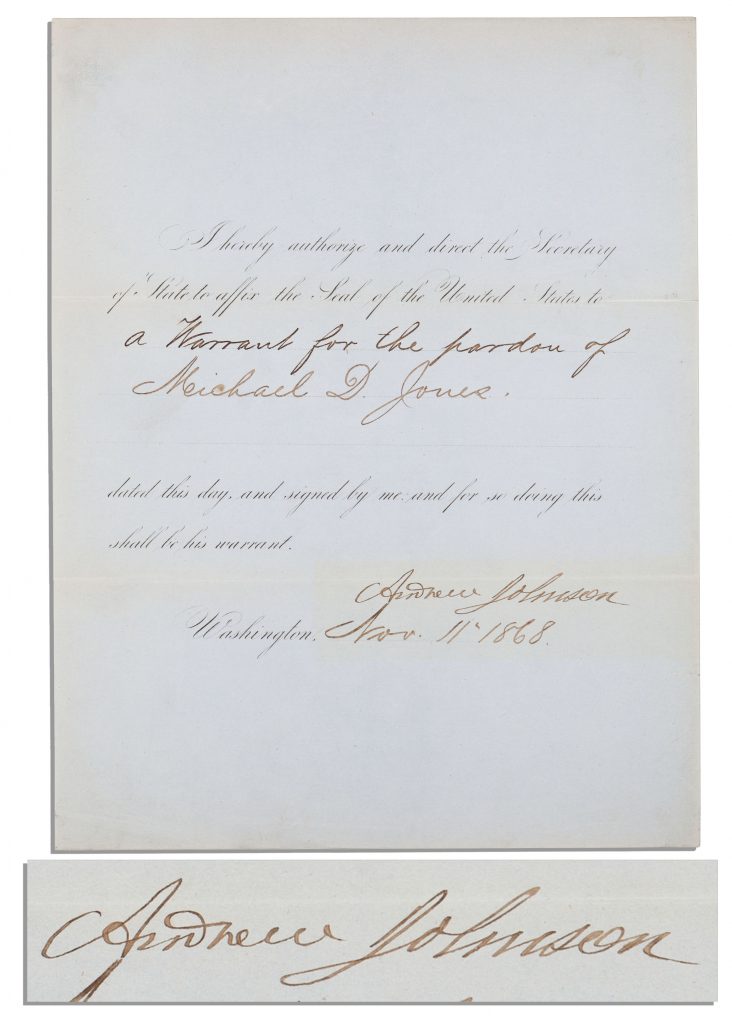 I hereby authorize and direct the Secretary
of State to affix the Seal of the United States to
a Warrant for the pardon of
Michael D. Jones.
dated this day, and signed by me: and for so doing this
shall be his warrant.
Andrew Johnson
Washington, Nov. 11" 1868.
Andrew Johnson